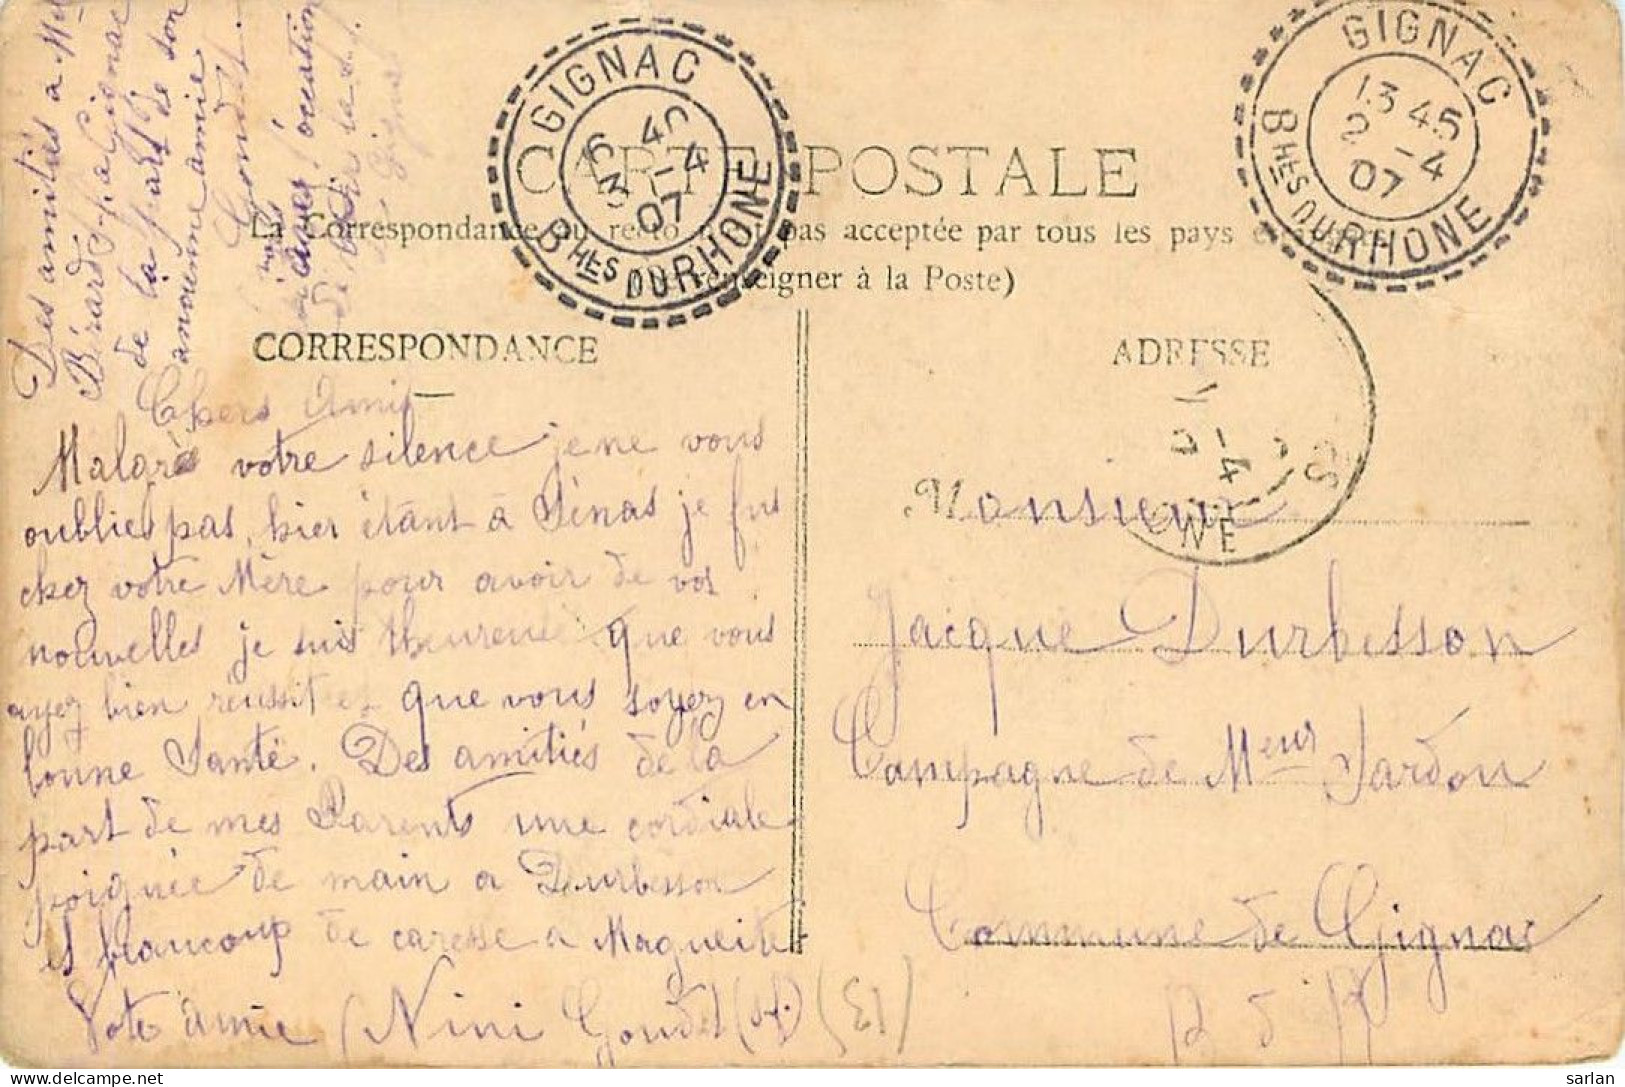 Des amitiés à Mlle
Bérard, Gignac
de la part de son
ancienne amie
Goudet.
GIGNAC
6 40
3 -4
07
BHES DU RHONE
GIGNAC
13 45
2 -4
07
BHES DU RHONE
CARTE POSTALE
La Correspondance au recto n'est pas acceptée par tous les pays
(Se renseigner à la Poste)
CORRESPONDANCE
ADRESSE
Chers Amis
Malgrés votre silence je ne vous
oublies pas, hier étant à Sénas je fus
chez votre Mère pour avoir de vos
nouvelles je suis theureuse que vous
ayez bien réussit et que vous soyez en
bonne Santé. Des amitiés de la
part de mes Parents une cordiale
poignée de main a Durbesson
et beaucoup de caresse a Margueite
Vote amie Nini Goudet
(13)
Monsieur
Jacque Durbesson
Campagne de Meur Jardon
Commune de Gignac
B d R
-4
ONE
sarlan